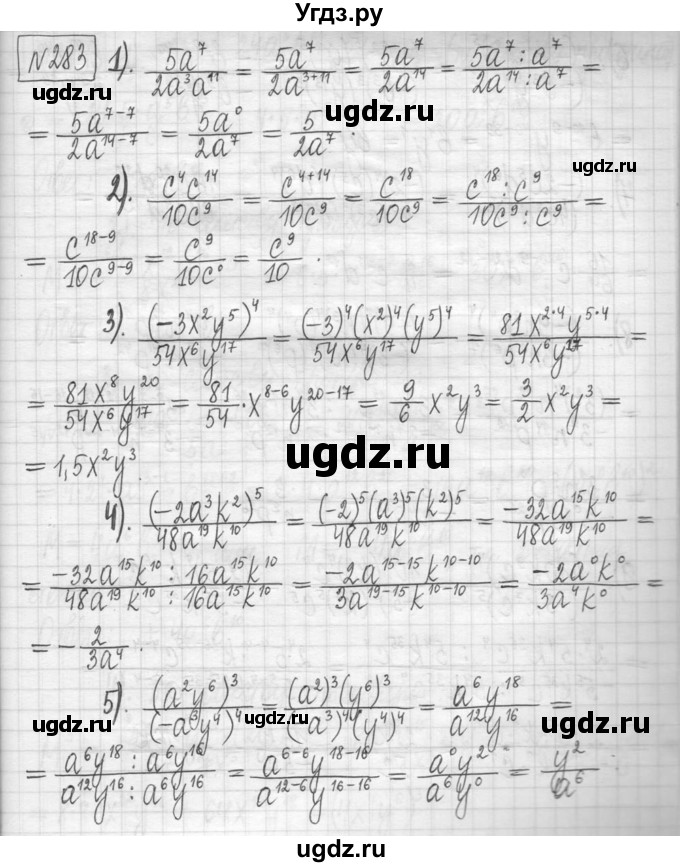 Угдз.ру
№283 1). 5a⁷/2a³a¹¹ = 5a⁷/2a³⁺¹¹ = 5a⁷/2a¹⁴ = 5a⁷:a⁷/2a¹⁴:a⁷ =
ugdz.ru ugdz.ru
= 5a⁷⁻⁷/2a¹⁴⁻⁷ = 5a⁰/2a⁷ = 5/2a⁷.
ugdz.ru
2). c⁴c¹⁴/10c⁹ = c⁴⁺¹⁴/10c⁹ = c¹⁸/10c⁹ = c¹⁸:c⁹/10c⁹:c⁹ =
= c¹⁸⁻⁹/10c⁹⁻⁹ = c⁹/10c⁰ = c⁹/10.
3). (-3x²y⁵)⁴/54x⁶y¹⁷ = (-3)⁴(x²)⁴(y⁵)⁴/54x⁶y¹⁷ = 81x²·⁴y⁵·⁴/54x⁶y¹⁷ =
ugdz.ru ugdz.ru
= 81x⁸y²⁰/54x⁶y¹⁷ = 81/54·x⁸⁻⁶y²⁰⁻¹⁷ = 9/6 x²y³ = 3/2 x²y³ =
= 1,5x²y³.
ugdz.ru
4). (-2a³k²)⁵/48a¹⁹k¹⁰ = (-2)⁵(a³)⁵(k²)⁵/48a¹⁹k¹⁰ = -32a¹⁵k¹⁰/48a¹⁹k¹⁰ =
ugdz.ru ugdz.ru
= -32a¹⁵k¹⁰:16a¹⁵k¹⁰/48a¹⁹k¹⁰:16a¹⁵k¹⁰ = -2a¹⁵⁻¹⁵k¹⁰⁻¹⁰/3a¹⁹⁻¹⁵k¹⁰⁻¹⁰ = -2a⁰k⁰/3a⁴k⁰ =
= -2/3a⁴.
5). (a²y⁶)³/(-a³y⁴)⁴ = (a²)³(y⁶)³/(a³)⁴(y⁴)⁴ = a⁶y¹⁸/a¹²y¹⁶ =
ugdz.ru ugdz.ru ugdz.ru
= a⁶y¹⁸:a⁶y¹⁶/a¹²y¹⁶:a⁶y¹⁶ = a⁶⁻⁶y¹⁸⁻¹⁶/a¹²⁻⁶y¹⁶⁻¹⁶ = a⁰y²/a⁶y⁰ = y²/a⁶
ugdz.ru